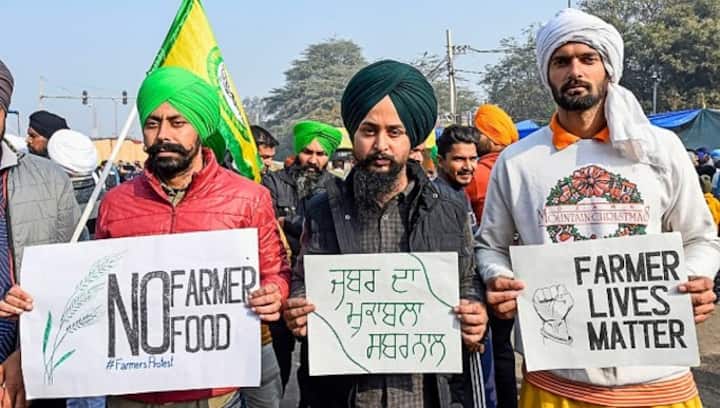 NO FARMER
NO FOOD
#FarmersProtest
ਜਬਰ ਦਾ
ਮੁਕਾਬਲਾ
ਸਬਰ ਨਾਲ
MOUNTAIN CHRISTMAS
FARMER
LIVES
MATTER